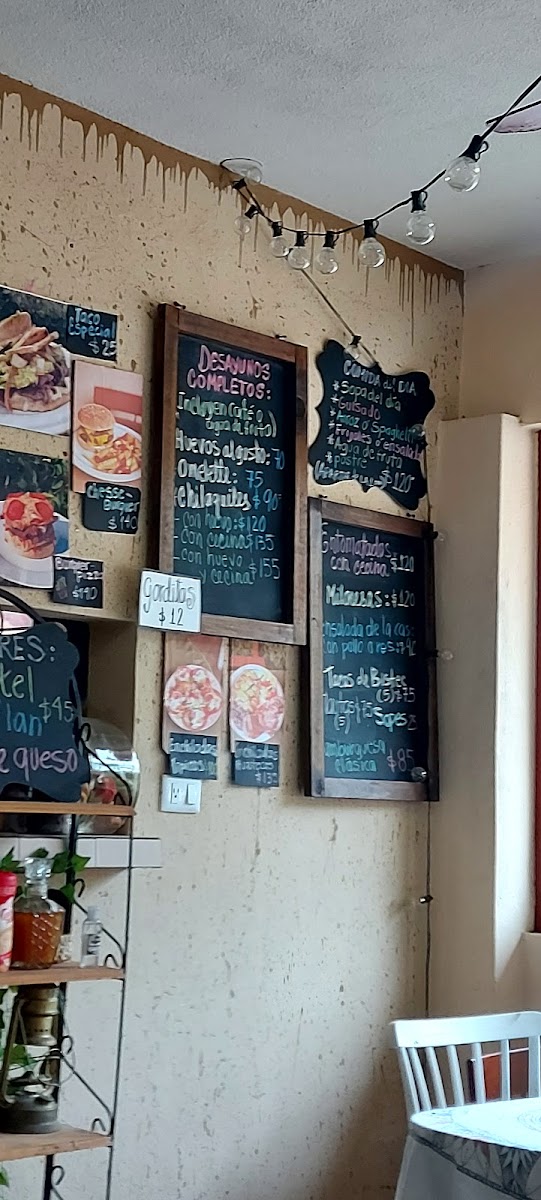 Taco
Especial
$25
chesse-
Burguer
$140
Burguer
$140
RES:
$45
queso
DESAYUNOS
COMPLETOS:
Incluyen café o
agua de fruta)
Huevos al gusto: 70
Omelette: 75
Chilaquiles $90
- con huevo: $120
- con cecina $135
- con huevo $155
y cecina
Gorditas
$12
Enchiladas
$132
COMIDA del DIA
*Sopa del día
*Guisado
*Arroz o Spaghetti
*Frijoles o ensalada
*Agua de fruta
*postre
$120
Entomatadas
con cecina $120
Milanesas: $120
Ensalada de la casa
con pollo o res:
Tacos de Bistec
(5)
(5) Sopes 25
Hamburguesa
clásica $85